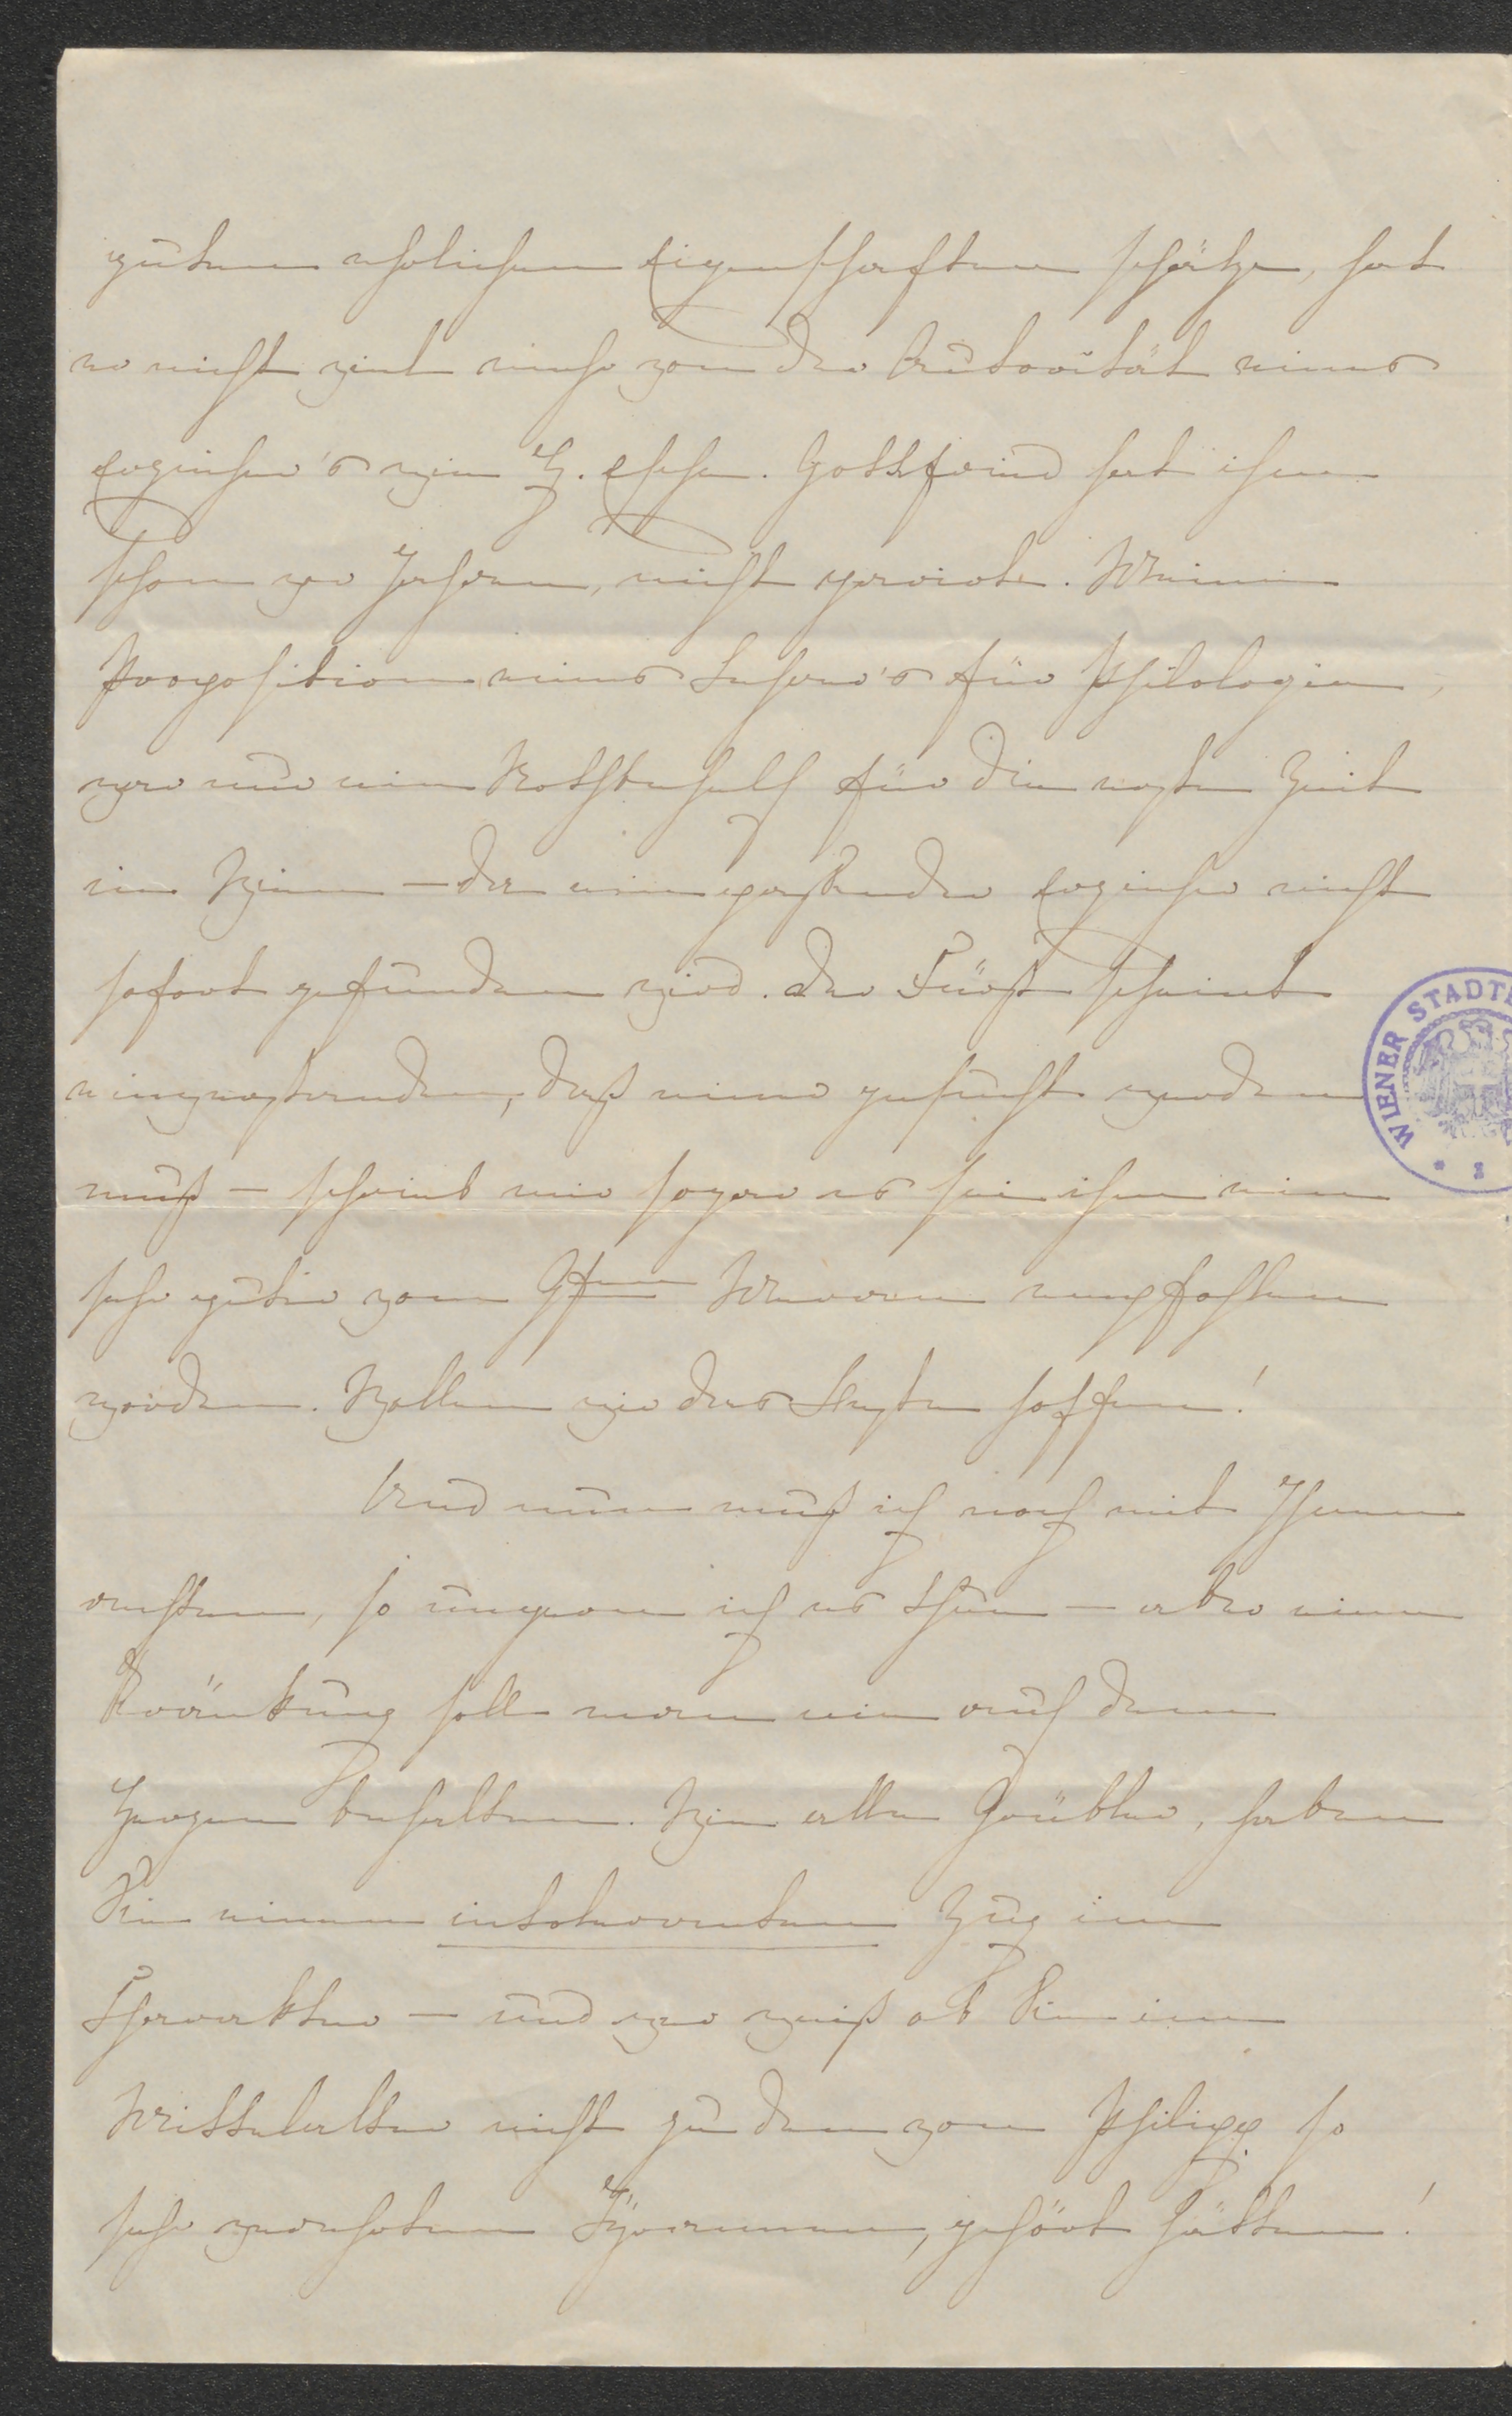 guten ehrlichen Eigenschaften schätze, hat
er nicht viel mehr von der Autorität eines
Erzieher's wie H. Gottfried hat ihm
schon vor Jahren, nicht parirt. Meine
Proposition eines Lehrer's für Philologie,
war nur ein Nothbehelf für die erste Zeit
im Wien — da ein passender Erzieher nicht
sofort gefunden wird. Der Fürst scheint
einverstanden, daß einer gesucht werden
muß — scheint mir sogar es sei ihm ein
sehr guter vom empfohlen
worden. Wollen wir das Beste hoffen!
Und nun muß ich noch mit Ihnen
rechten, so ungern ich es thue — aber eine
Kränkung soll man nie auf dem
Herzen behalten. Wie alle Grübler, haben
Sie einen intoleranten Zug im
Charakter — und wer weiß ob Sie im
Mittelalter nicht zu den von Philipp so
sehr verehrten Tyrannen, gehört hätten!
WIENER STADT